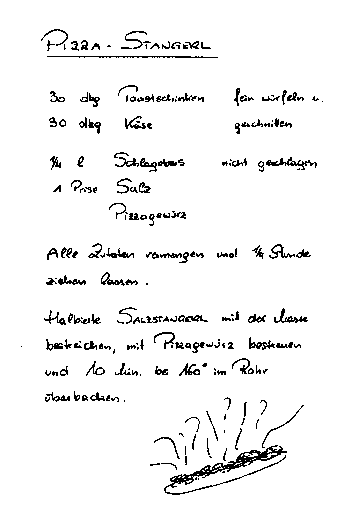 PIZZA - STANGERL
30 dkg Toastschinken fein würfeln u.
30 dkg Käse geschnitten
1/4 l Schlagobers nicht geschlagen
1 Prise Salz
Pizzagewürz
Alle Zutaten vermengen und 1/2 Stunde
ziehen lassen.
Halbierte SALZSTANGERL mit der Masse
bestreichen, mit Pizzagewürz bestreuen
und 10 Min. bei 160° im Rohr
überbacken.